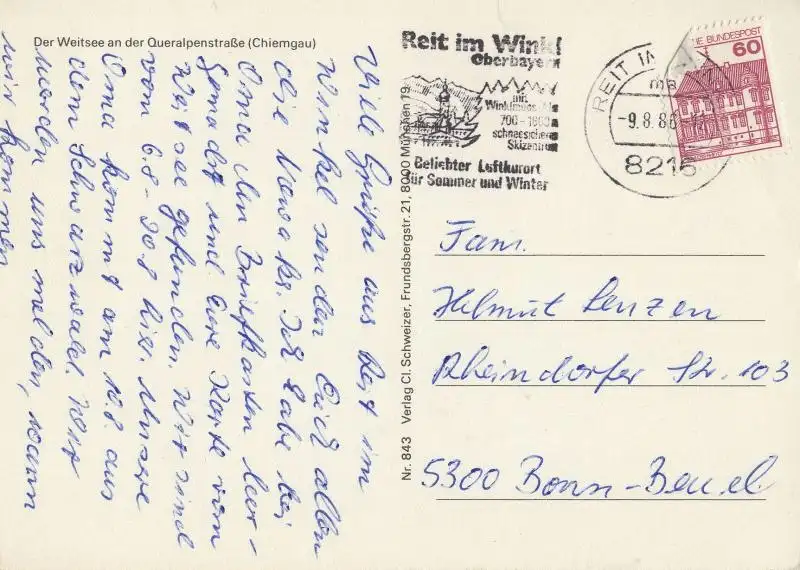 Der Weitsee an der Queralpenstraße (Chiemgau)
Viele Grüße aus Reit im
Winkel senden Euch allen
die Ich habe bei
Oma den Briefkasten leer-
gemacht und Eure Karte vom
Weit see gefunden. Wir sind
vom 6.8 - 20.8 hier. Unsere
Oma kommt am 10.8. aus
dem Schwarzwald. Wir
werden uns melden, wann
wir kommen
Nr. 843 Verlag Cl. Schweizer, Frundsbergstr. 21, 8000 München 19
Reit im Winkl
Oberbayern
mit
Winklmoos
700-1800
schneesicheres
Skizentrum
Beliebter Luftkurort
für Sommer und Winter
REIT IM
-9.8.86
8216
BUNDESPOST
60
Fam.
Helmut Lenzen
Rheindorfer Str. 103
5300 Bonn-Beuel